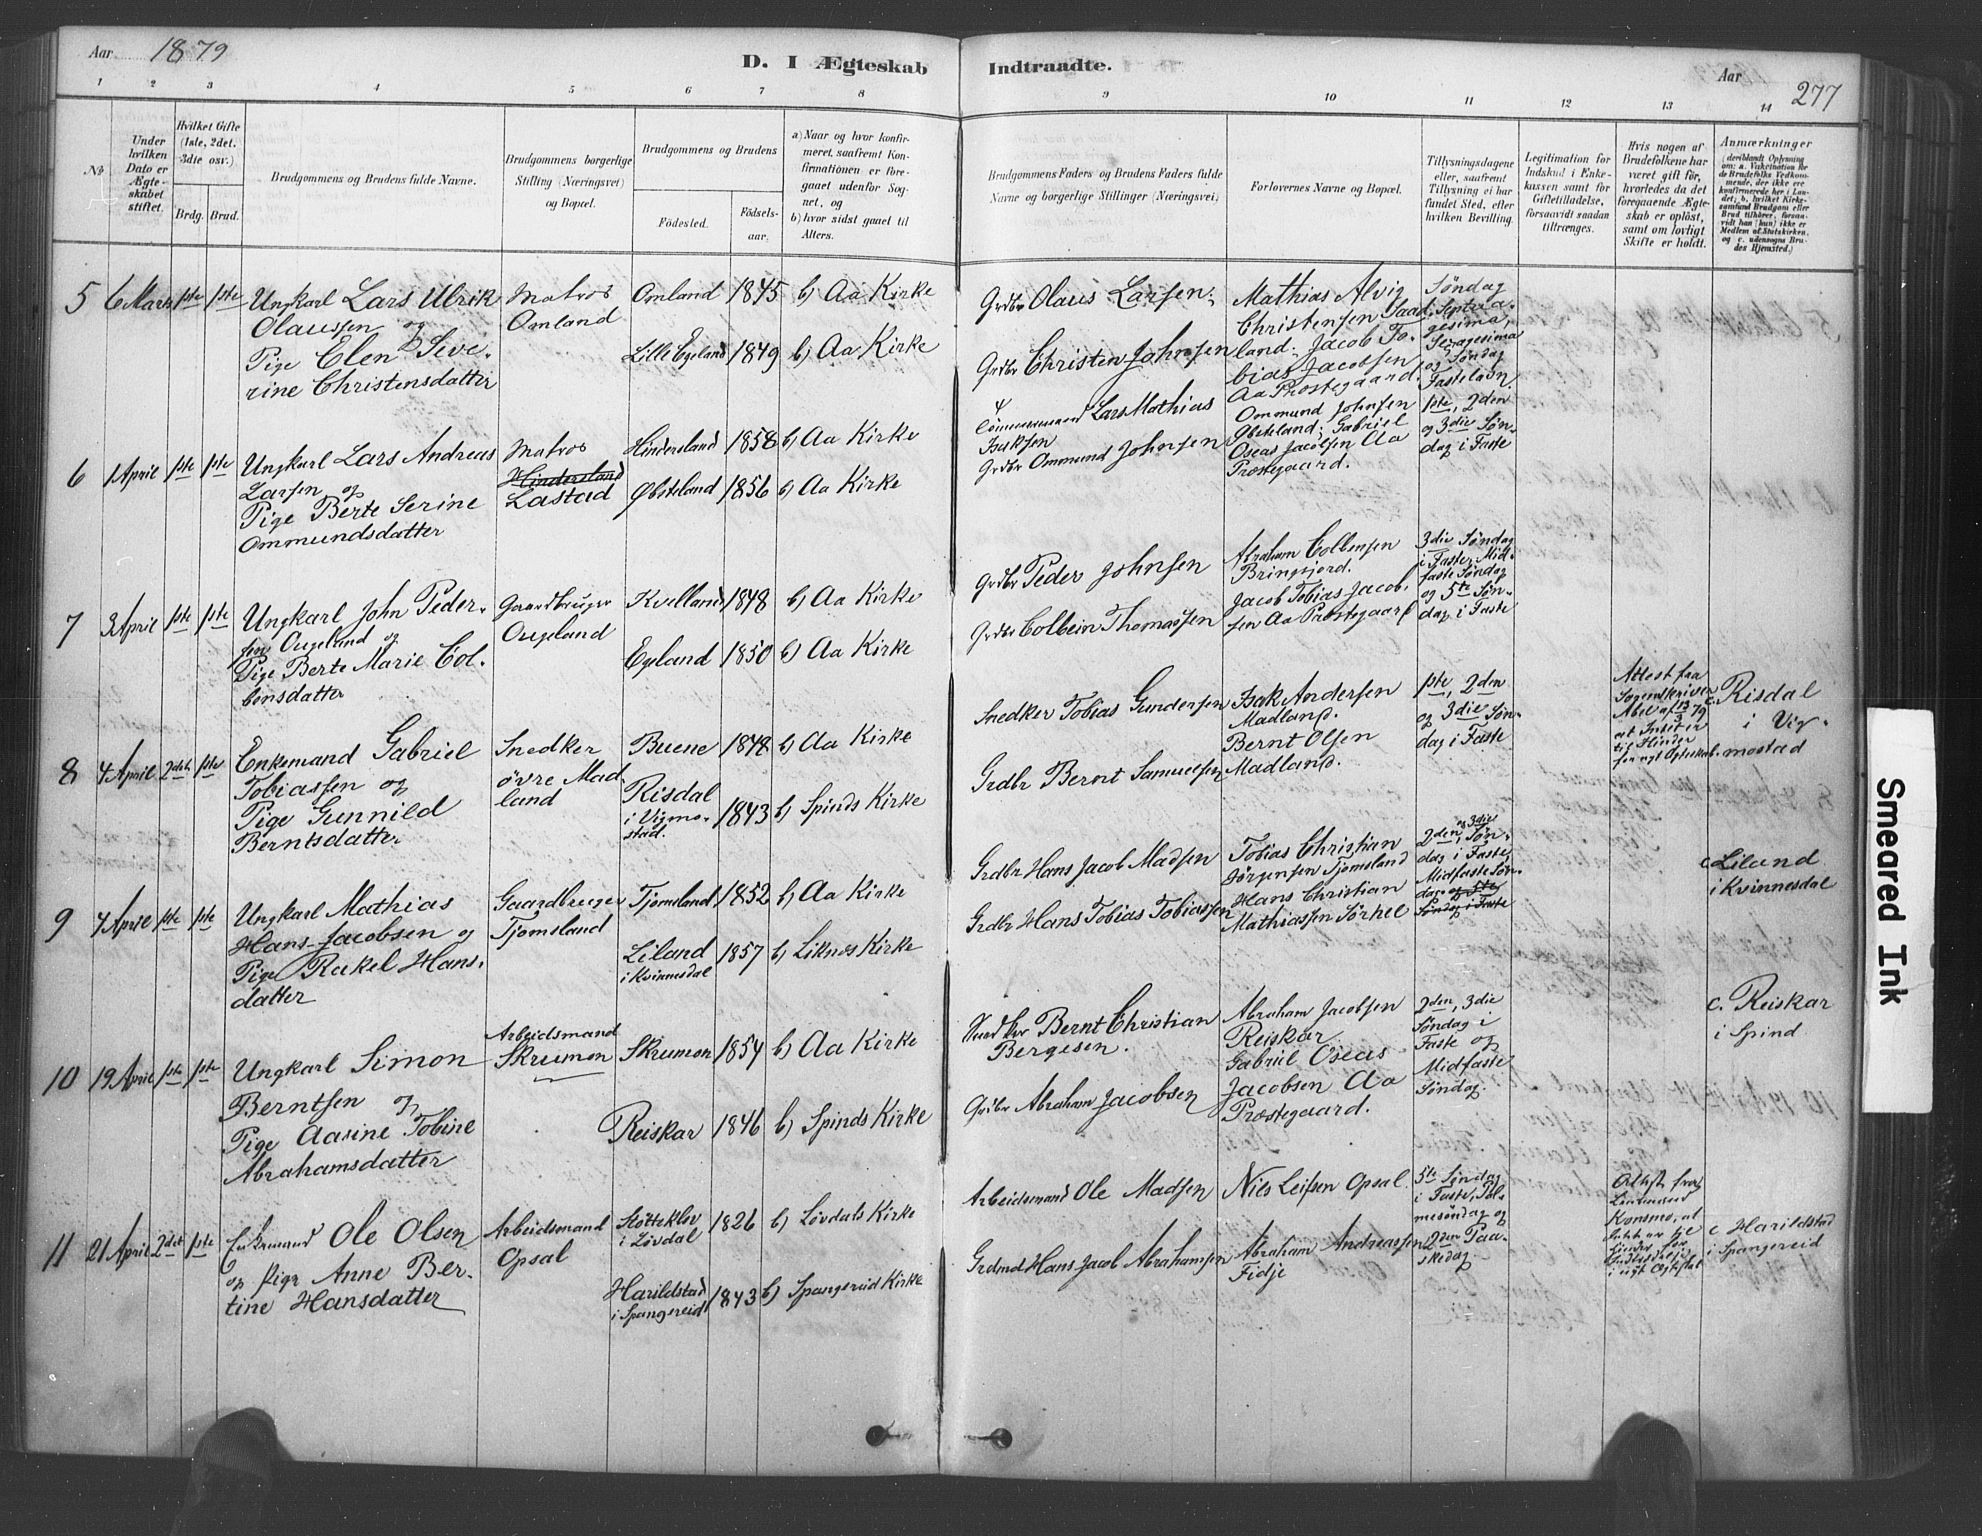 Aar 1879
D. I Ægteskab Indtraadte.
Aar
277
1 2 3 4 5 6 7 8 9 10 11 12 13 14
Nb
Under hvilken Dato er Ægteskabet stiftet.
Hvilket Gifte (1ste, 2det. 3die osv.)
Brdg. Brud.
Brudgommens og Brudens fulde Navne.
Brudgommens borgerlige Stilling (Næringsvei) og Bopæl.
Brudgommens og Brudens
Fødested.
Fødselsaar.
a) Naar og hvor konfirmeret, saafremt Konfirmationen er foregaaet udenfor Sognet, og
b) hvor sidst gaaet til Alters.
Brudgommens Faders og Brudens Faders fulde Navne og borgerlige Stillinger (Næringsvei).
Forlovernes Navne og Bopæl.
Tillysningsdagene eller, saafremt Tillysning ei har fundet Sted, efter hvilken Bevilling.
Legitimation for Indskud i Enkekassen samt for Giftetilladelse, forsaavidt saadan tiltrænges.
Hvis nogen af Brudefolkene har været gift før, hvorledes da det foregaaende Ægteskab er opløst, samt om lovligt Skifte er holdt.
Anmærkninger
(deriblandt Oplysning om: a. Vakcination for de Brudefolks Vedkommende, der ikke ere konfirmerede her i Landet; b. hvilket Kirkesamfund Brudgom eller Brud tilhører, forsaavidt han (hun) ikke er Medlem af Statskirken, og c. udensogns Brudes Hjemsted.)
5 6 Marts 1ste 1ste
Ungkarl Lars Ulrik
Olaussen og
Pige Elen Seve-
rine Christensdatter
Matros
Omland
Omland 1845 b) Aa Kirke
Lille Egeland 1849 b) Aa Kirke
Grdbr Olaus Larsen
Grdbr Christen Johnsen
Mathias Alvig
Christensen Saad-
land; Jacob To-
bias Jacobsen
Aa Præstegaard.
Søndag
Septua-
gesima,
Sexagesima
og Søndag
Fastelavn
6 1 April 1ste 1ste
Ungkarl Lars Andreas
Larsen og
Pige Berte Serine
Ommundsdatter
Matros
Hindersland
Lastad
Hindersland 1858 b) Aa Kirke
Øbsteland 1856 b) Aa Kirke
Lars Mathias
Isaksen
Grdbr Ommund Johnsen
Ommund Johnsen
Øbsteland; Gabriel
Oseas Jacobsen Aa
Præstegaard.
1ste, 2den
og 3die Søn-
dag i Faste
7 3 April 1ste 1ste
Ungkarl John Peder-
sen Øugeland og
Pige Berte Marie Col-
bensdatter
Gaardbruger
Øugeland
Kvelland 1848 b) Aa Kirke
Egeland 1850 b) Aa Kirke
Grdbr Peder Johnsen
Grdbr Colbein Thomassen
Abraham Colbensen
Bringsjord.
Jacob Tobias Jacob-
sen Aa Præstegaard
3die Søndag
i Faste, Mid-
faste Søndag
og 5te Søn-
dag i Faste
8 4 April 2det 1ste
Enkemand Gabriel
Tobiassen og
Pige Gunnild
Berntsdatter
Snedker
øvre Mad-
land
Buene 1848 b) Aa Kirke
Risdal
i Vigmo-
stad. 1843 b) Spinds Kirke
Snedker Tobias Gundersen
Grdbr Bernt Samuelsen
Isak Andersen
Madland.
Bernt Olsen
Madland.
1ste, 2den
og 3die Søn-
dag i Faste
Attest fra
Sorenskriver
Abel af 13/3 79
at Intet er
til Hinder
for nyt Ægteskab.
c. Risdal
i Vig-
mostad
9 4 April 1ste 1ste
Ungkarl Mathias
Hans Jacobsen og
Pige Rakel Hans-
datter
Gaardbruger
Tjomsland
Tjomsland 1852 b) Aa Kirke
Liland
i Kvinnesdal 1857 b) Liknes Kirke
Grdbr Hans Jacob Madsen
Grdbr Hans Tobias Tobiassen
Tobias Christian
Jørgensen Tjomsland
Hans Christian
Mathiassen Sørhel
2den, og 3die Søn-
dag i Faste,
Midfaste Søn-
dag og 5te
Søndag i Faste
c. Liland
i Kvinnesdal
10 19 April 1ste 1ste
Ungkarl Simon
Berntsen og
Pige Aasine Tobine
Abrahamsdatter
Arbeidsmand
Skrumon
Skrumon 1854 b) Aa Kirke
Reiskar 1846 b) Spinds Kirke
Bernt Christian
Bergesen.
Grdbr Abraham Jacobsen
Abraham Jacobsen
Reiskar
Gabriel Oseas
Jacobsen Aa
Præstegaard.
2den, 3die
Søndag i
Faste og
Midfaste
Søndag.
c. Reiskar
i Spind
11 21 April 2det 1ste
Enkemand Ole Olsen
og Pige Anne Ber-
tine Hansdatter
Arbeidsmand
Opsal
i Løvdal 1826 b) Løvdals Kirke
Harildstad
i Spangereid 1843 b) Spangereid Kirke
Arbeidsmand Ole Madsen
Grdmd Hans Jacob Abrahamsen
Nils Leifsen Opsal
Abraham Andreassen
Fidje
5te Søndag
i Faste, Pal-
mesøndag og
2den Paa-
skedag
Attest fra
Lensmand
Konsmo, at
c Harildstad
i Spangereid
Smeared Ink